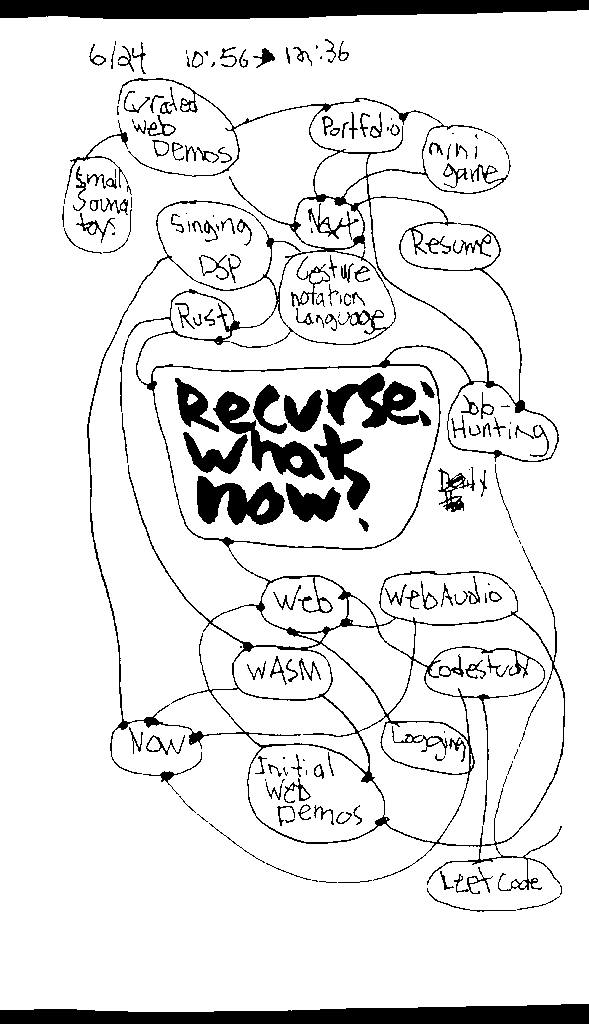 6/24 10:56→12:36
Curated
Web
Demos
Portfolio
mini
game
Small
Sound
toys
Singing
DSP
Next
Resume
Gesture
notation
Language
Rust
Recurse:
What
now?
Job-
Hunting
Web
WebAudio
WASM
Codestudy
Now
Logging
Initial
Web
Demos
Leetcode